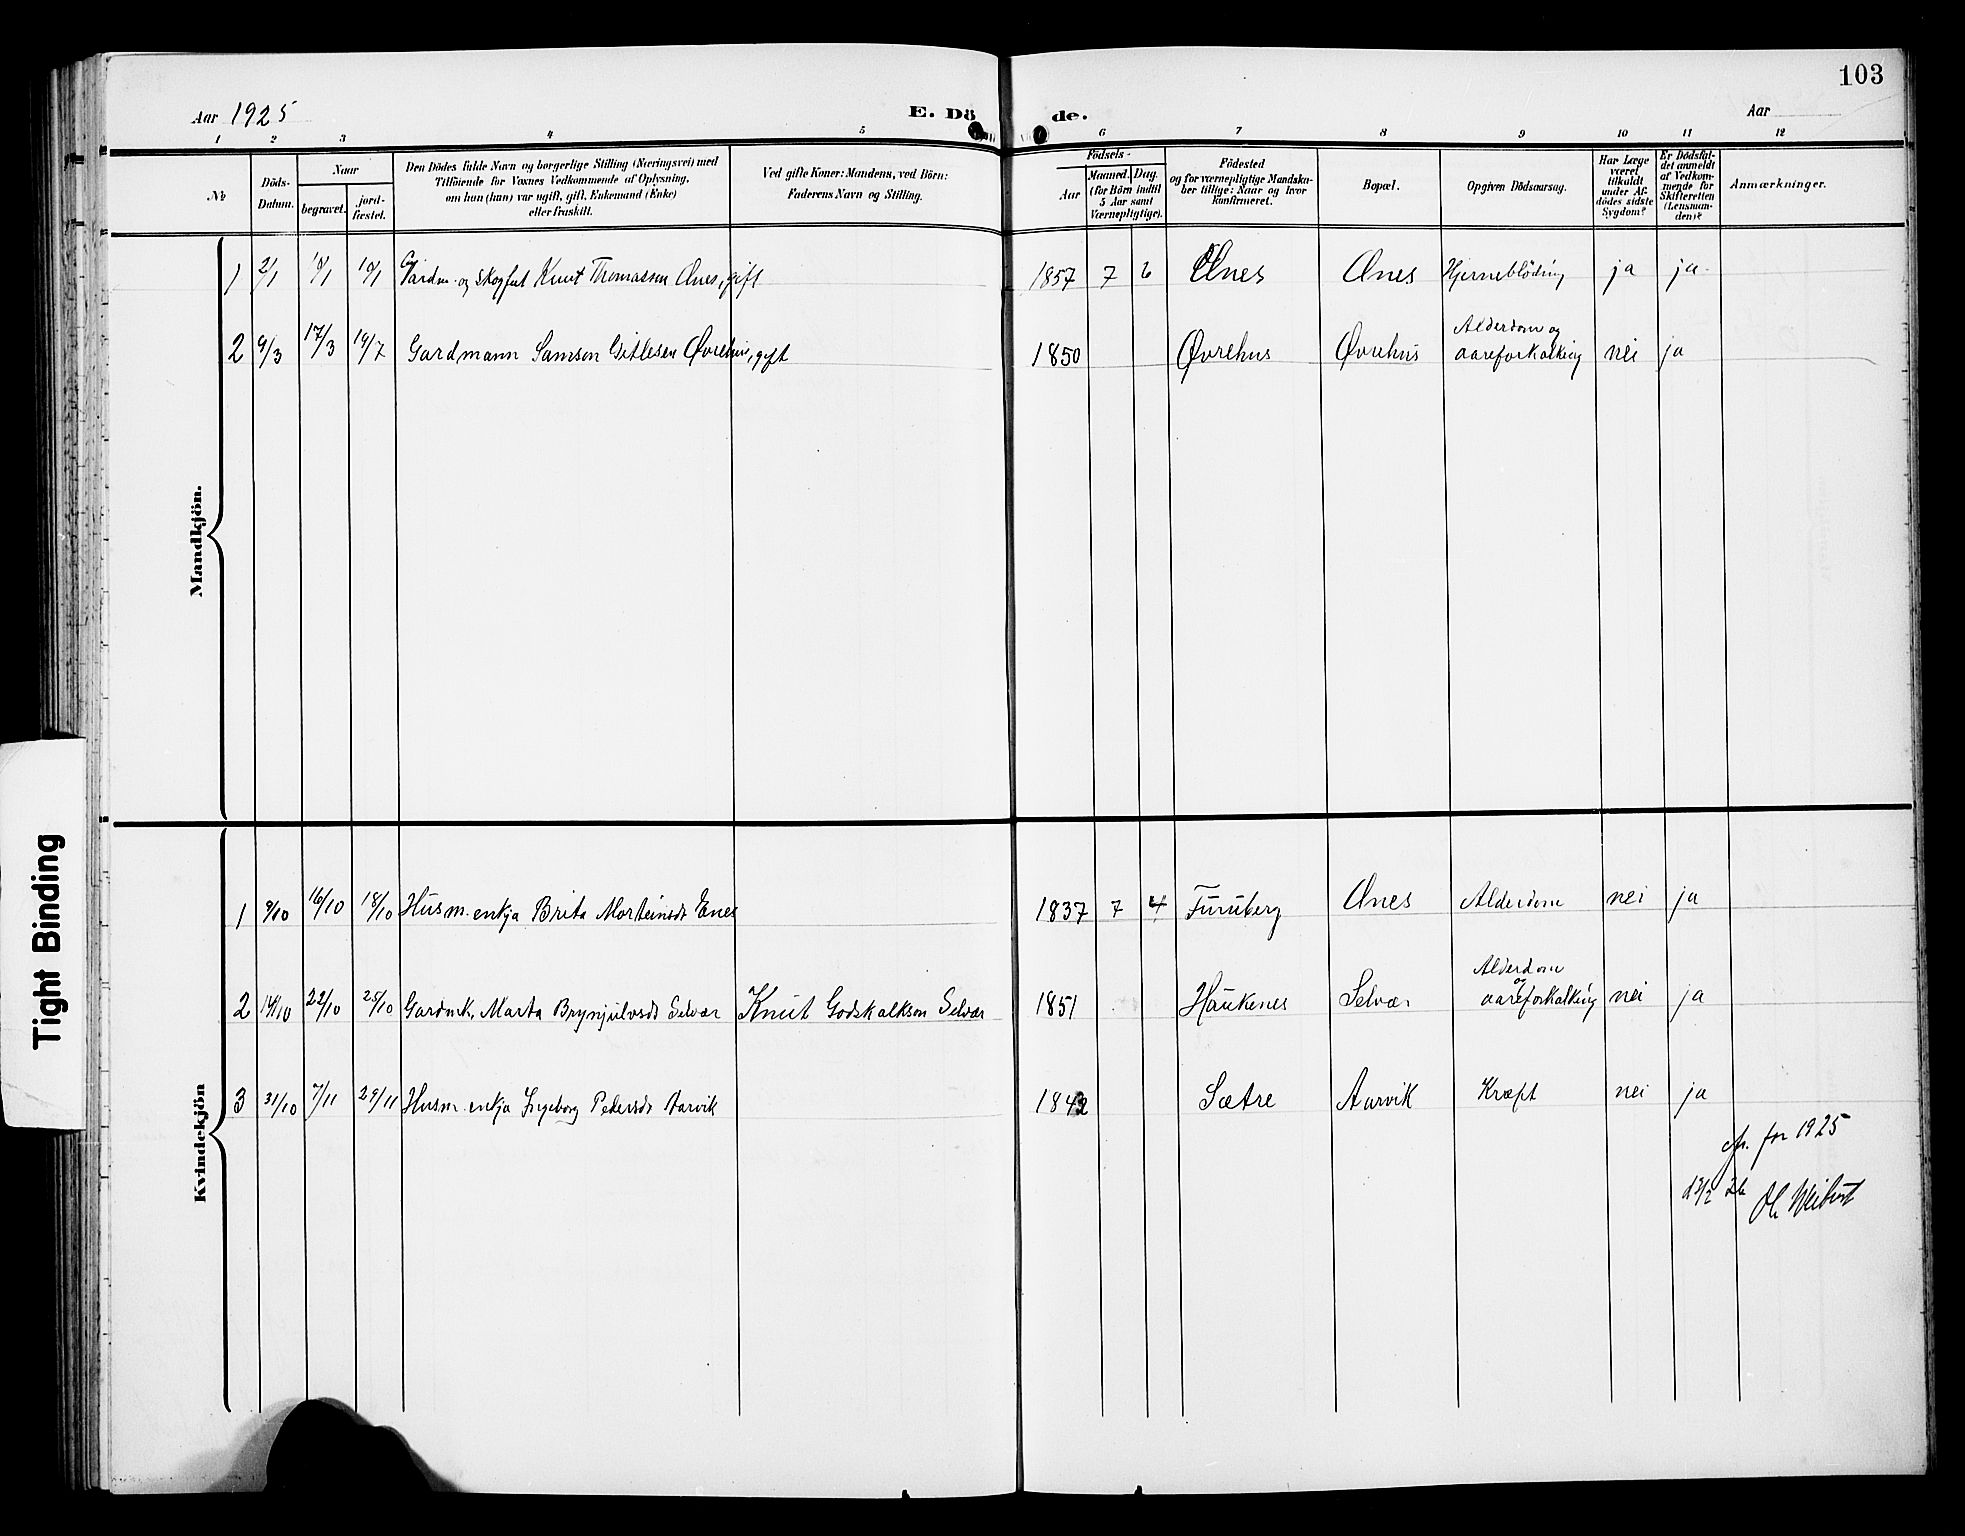 103
Aar 1925
E. Döde.
Aar
1 2 3 4 5 6 7 8 9 10 11 12
No
Döds-
Datum.
Naar
begravet.
jord-
fæstet.
Den Dödes fulde Navn og borgerlige Stilling (Næringsvei) med
Tilföiende for Voxnes Vedkommende af Oplysning,
om hun (han) var ugift, gift, Enkemand (Enke)
eller fraskilt.
Ved gifte Koner: Mandens, ved Börn:
Faderens Navn og Stilling.
Födsels-
Aar
Maaned. Dag.
(for Börn indtil
5 Aar samt
Værnepligtige).
Födested
og for værnepligtige Mandska-
ber tillige: Naar og hvor
konfirmeret.
Bopæl.
Opgiven Dödsaarsag.
Har Læge
været
tilkaldt
under Af-
dödes sidste
Sygdom?
Er Dödsfal-
det anmeldt
af Vedkom-
mende for
Skifteretten
(Lensman-
den)?
Anmærkninger.
Mandkjön.
1 2/1 10/1 Gardm. og Skogfut Knut Thomassen Ænes, gift 1857 7 6 Ænes Ænes Hjerneblöding ja ja
2 9/3 17/3 19/7 Gardmann Samson Gitlesen Øvrehus, gift 1850 Øvrehus Øvrehus Alderdom og
aareforkalking nei ja
Kvindekjön
1 9/10 16/10 18/10 Husm. enkja Brita Morteinsdt Enes 1837 7 4 Furuberg Ænes Alderdom nei ja
2 14/10 22/10 25/10 Gardmk. Marta Brynjulvsdt Selvær Knut Godskalkson Selvær 1851 Haukenes Selvær Alderdom
og
aareforkalking nei ja
3 31/10 7/11 29/11 Husm. enkja Ingeborg Petersdt Aarvik 1842 Sætre Aarvik Kræft nei ja
for 1925
Tight Binding